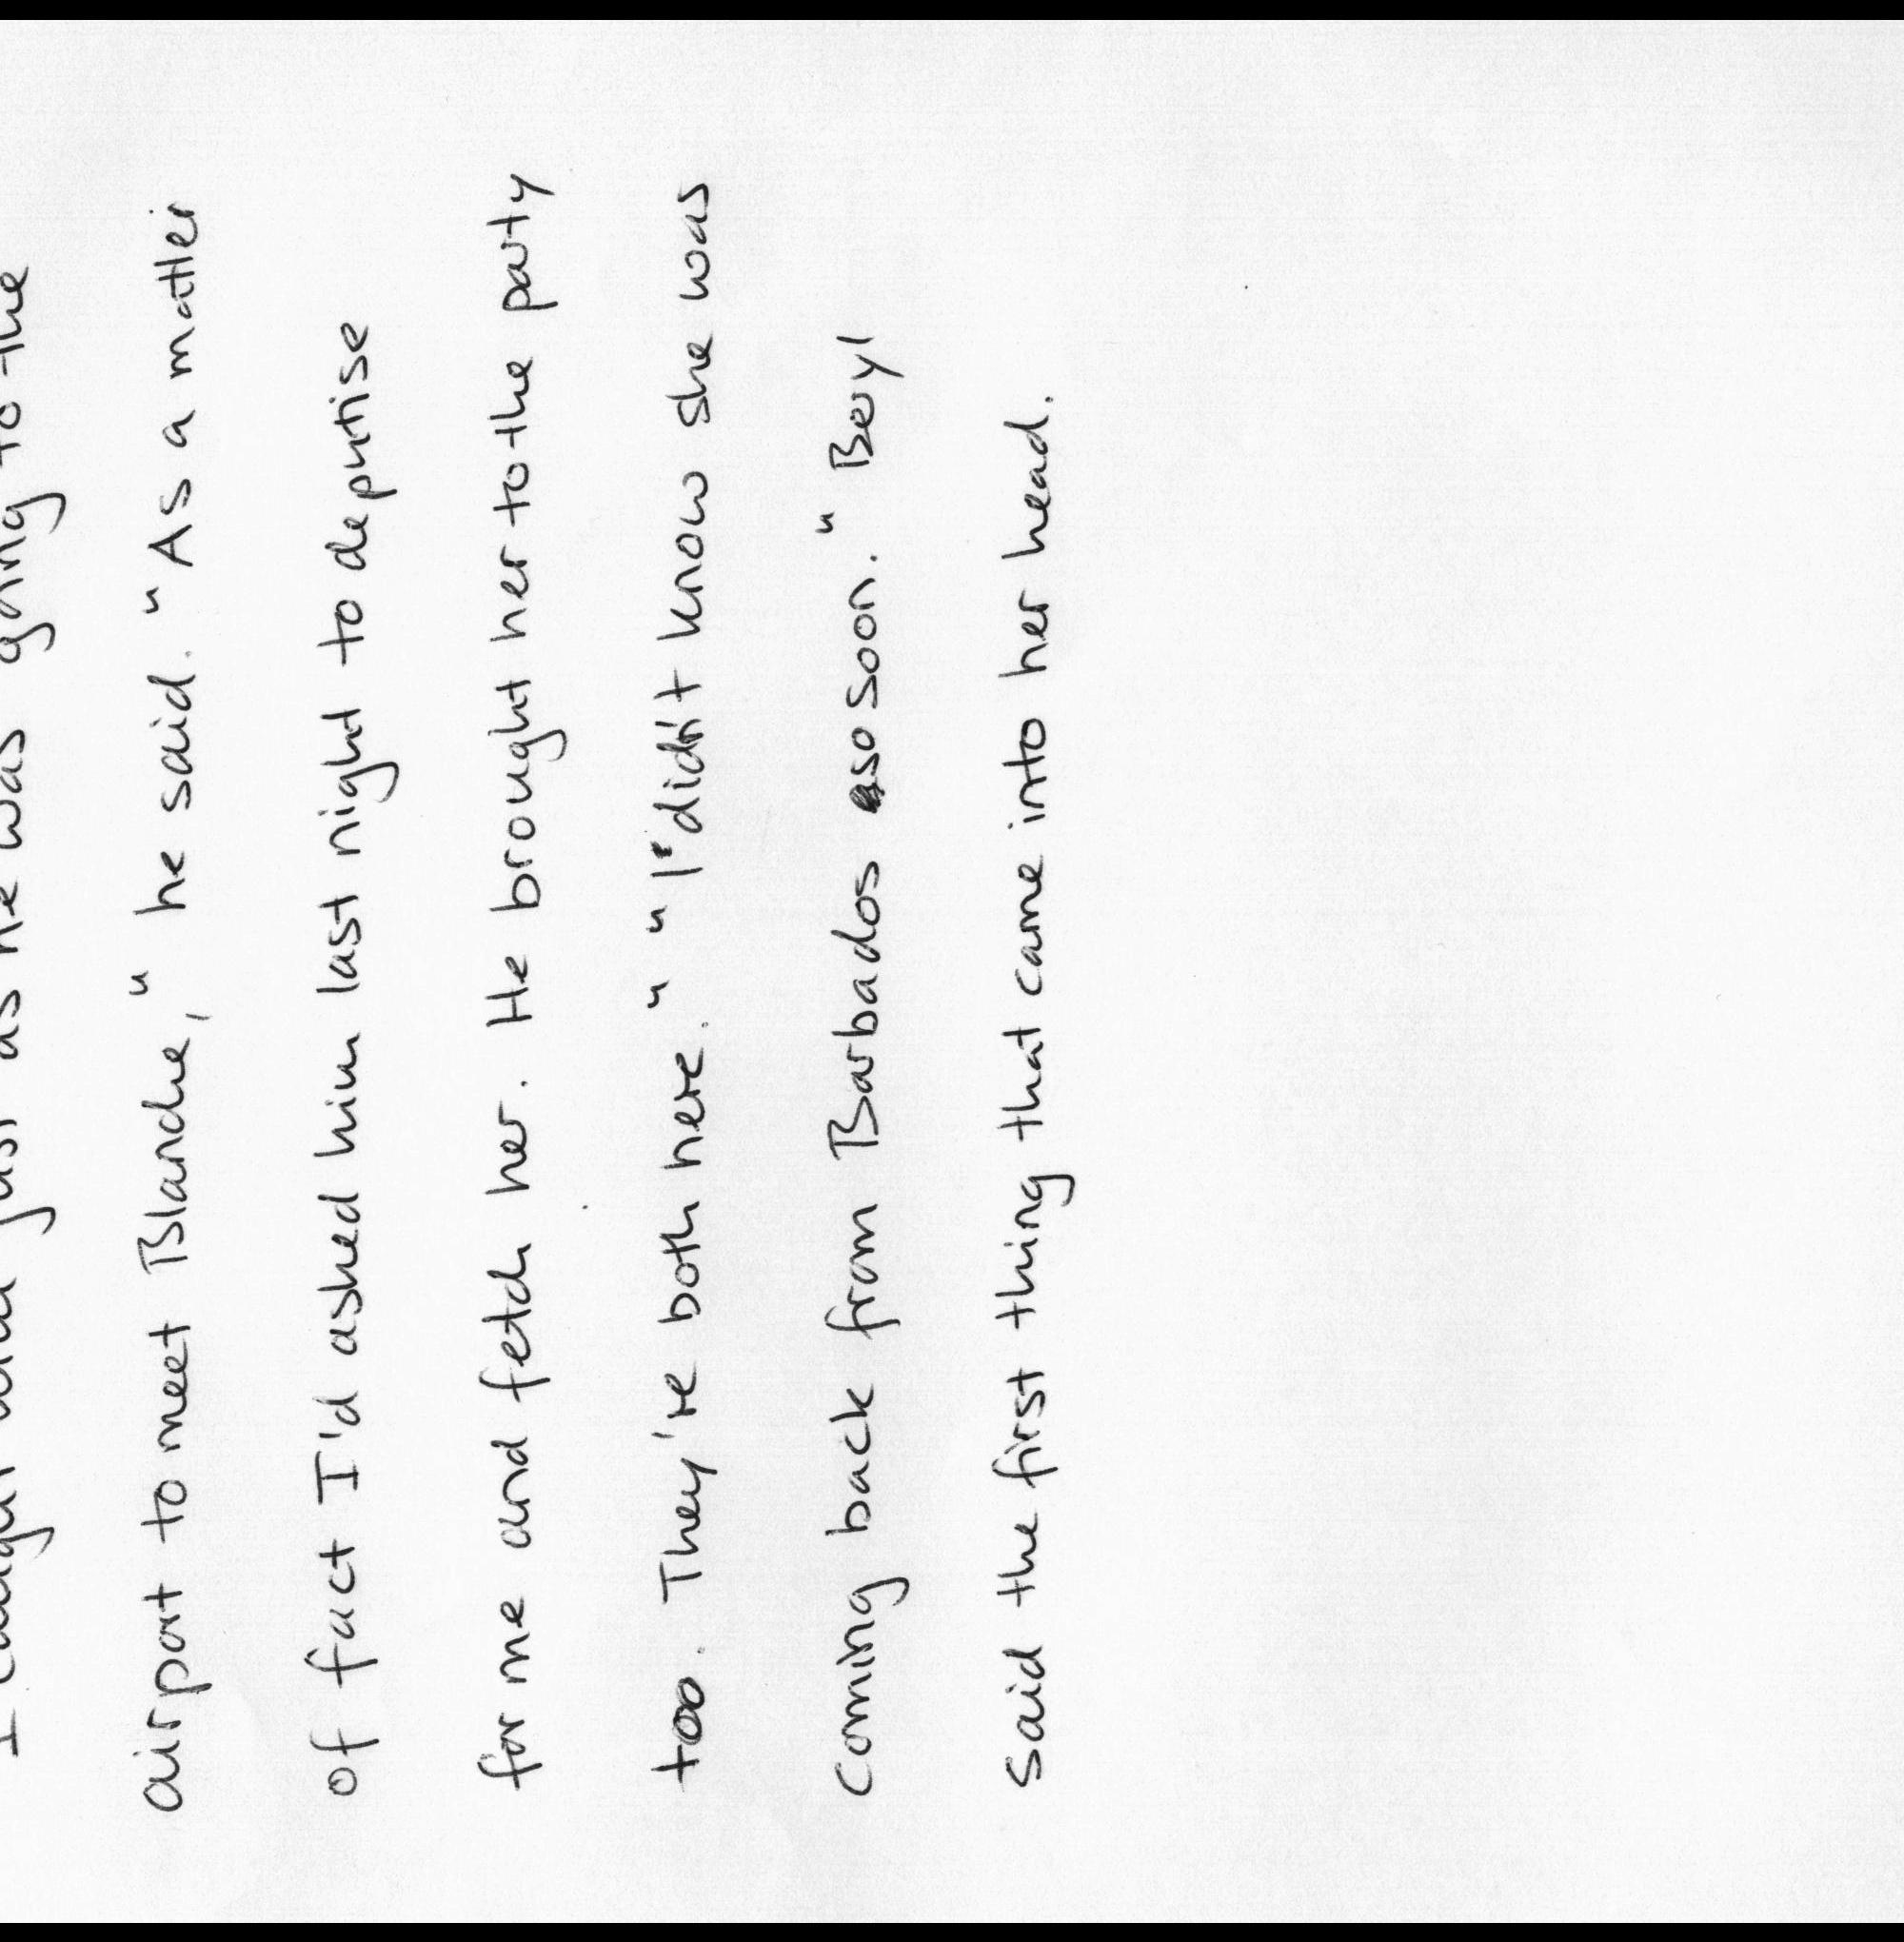 I caught him just as he was going to the
airport to meet Blanche," he said. "As a matter
of fact I'd asked him last night to deputise
for me and fetch her. He brought her to the party
too. They're both here." "I didn't know she was
coming back from Barbados so soon." Beryl
said the first thing that came into her head.